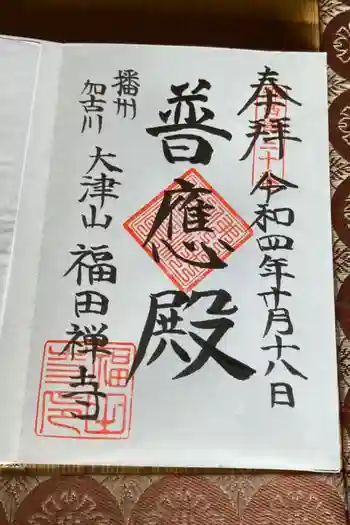 奉拝
令和四年十月十八日
普應殿
播州
加古川
大津山
福田禅寺